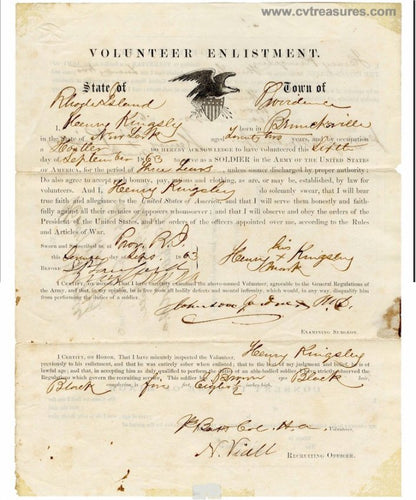 www.cvtreasures.com
VOLUNTEER ENLISTMENT.
State of Town of
Rhode Island Providence
I, Henry Kingsley born in
in the State of New York aged Twenty two years, and by occupation
a DO HEREBY ACKNOWLEDGE to have volunteered this
day of September 1863 to serve as a SOLDIER in the ARMY OF THE UNITED STATES
OF AMERICA, for the period of Three Years unless sooner discharged by proper authority:
Do also agree to accept such bounty, pay, rations and clothing, as are, or may be, established by law for
volunteers. And I, Henry Kingsley do solemnly swear, that I will bear
true faith and allegiance to the United States of America, and that I will serve them honestly and faith-
fully against all their enemies or opposers whomsoever; and that I will observe and obey the orders of the
President of the United States, and the orders of the officers appointed over me, according to the Rules
and Articles of War.
SWORN and subscribed to, at Prov. R.I.
1863 Henry his x mark Kingsley
BEFORE
I CERTIFY, ON HONOR, That I have carefully examined the above-named Volunteer, agreeable to the General Regulations of the
Army, and that, in my opinion, he is free from all bodily defects and mental infirmity, which would, in any way, disqualify him
from performing the duties of a soldier.
M.D.
EXAMINING SURGEON.
I CERTIFY, ON HONOR, That I have minutely inspected the Volunteer, Henry Kingsley
previously to his enlistment, and that he was entirely sober when enlisted; that to the best of my judgment and belief, he is of
lawful age; and that, in accepting him as duly qualified to perform the duties of an able-bodied soldier, I have strictly observed the
Regulations which govern the recruiting service. This soldier has Brown eyes Black hair,
Black complexion, is five feet inches high.
Volunteers,
N. Viall
RECRUITING OFFICER.